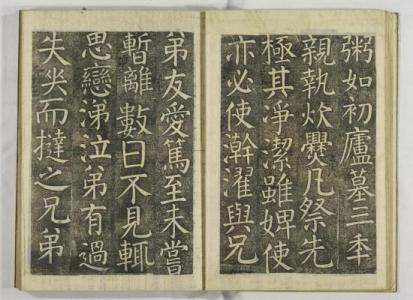 粥如初廬墓三年
親執炊爨凡祭先
極其淨潔雖婢使
亦必使澣濯與兄
弟友愛篤至未嘗
暫離數日不見輒
思戀涕泣弟有過
失坐而撻之兄弟